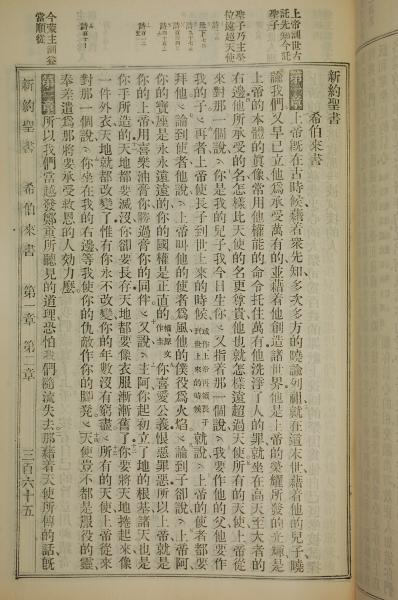 新約聖書
希伯來書
上帝訓世古
託先知今託
聖子
第一章 上帝旣在古時候藉着衆先知多次多方的曉諭列祖就在這末世藉着他的兒子曉
諭我們又早已立他爲承受萬有的並藉着他創造諸世界他是上帝的榮耀所發的光輝是
上帝的本體的眞像常用他權能的命令托住萬有他洗淨了人的罪就坐在高天至大者的
聖子乃主榮
位遠超天使
右邊他所承受的名怎樣比天使的名更尊貴他也就怎樣遠超過天使所有的天使上帝從
來對那一個說你是我的兒子我今日生你又指着那一個說我要作他的父他要作
我的子再者上帝使長子到世上來的時候或作上帝再領長子到世上來的時候就說上帝的使者都要
拜他論到使者他說上帝叫他的使者爲風他的僕役爲火焰論到子卻說上帝阿
你的寶座是永永遠遠的你的國權是正直的權原文作圭你喜愛公義恨惡罪惡所以上帝就是
你的上帝用喜樂油膏你勝過膏你的同伴又說主阿你起初立了地的根基諸天也是
你手所造的天地都要滅沒你卻要長存天地都要像衣服漸漸舊了你要將天地捲起來像
一件外衣天地就都改變了惟有你永不改變你的年數沒有窮盡所有的天使上帝從來
對那一個說你坐在我的右邊等我使你的仇敵作你的腳凳天使豈不都是服役的靈
奉差遣爲那將要承受救恩的人効力麽
今蒙主訓益
當順從
第二章 所以我們當越發鄭重所聽見的道理恐怕我們隨流失去那藉着天使所傳的話旣
新約聖書 希伯來書 第一章 第二章 三百六十五